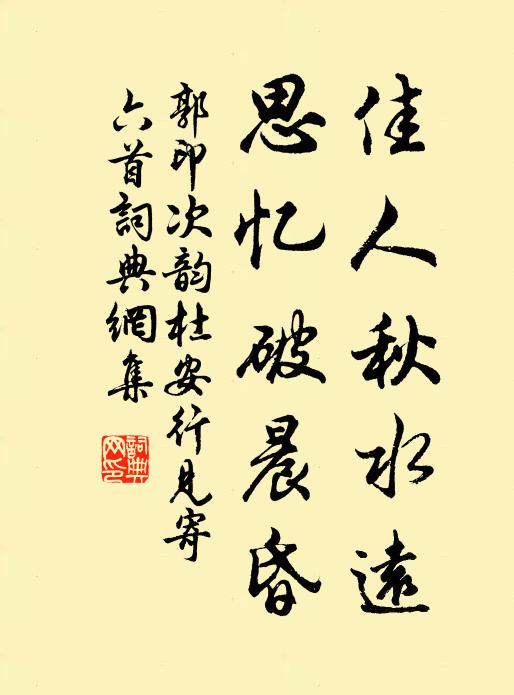 佳人秋水遠
思忆破晨昏
郭印次韵杜安行見寄
六首詞典網集
詞典网印